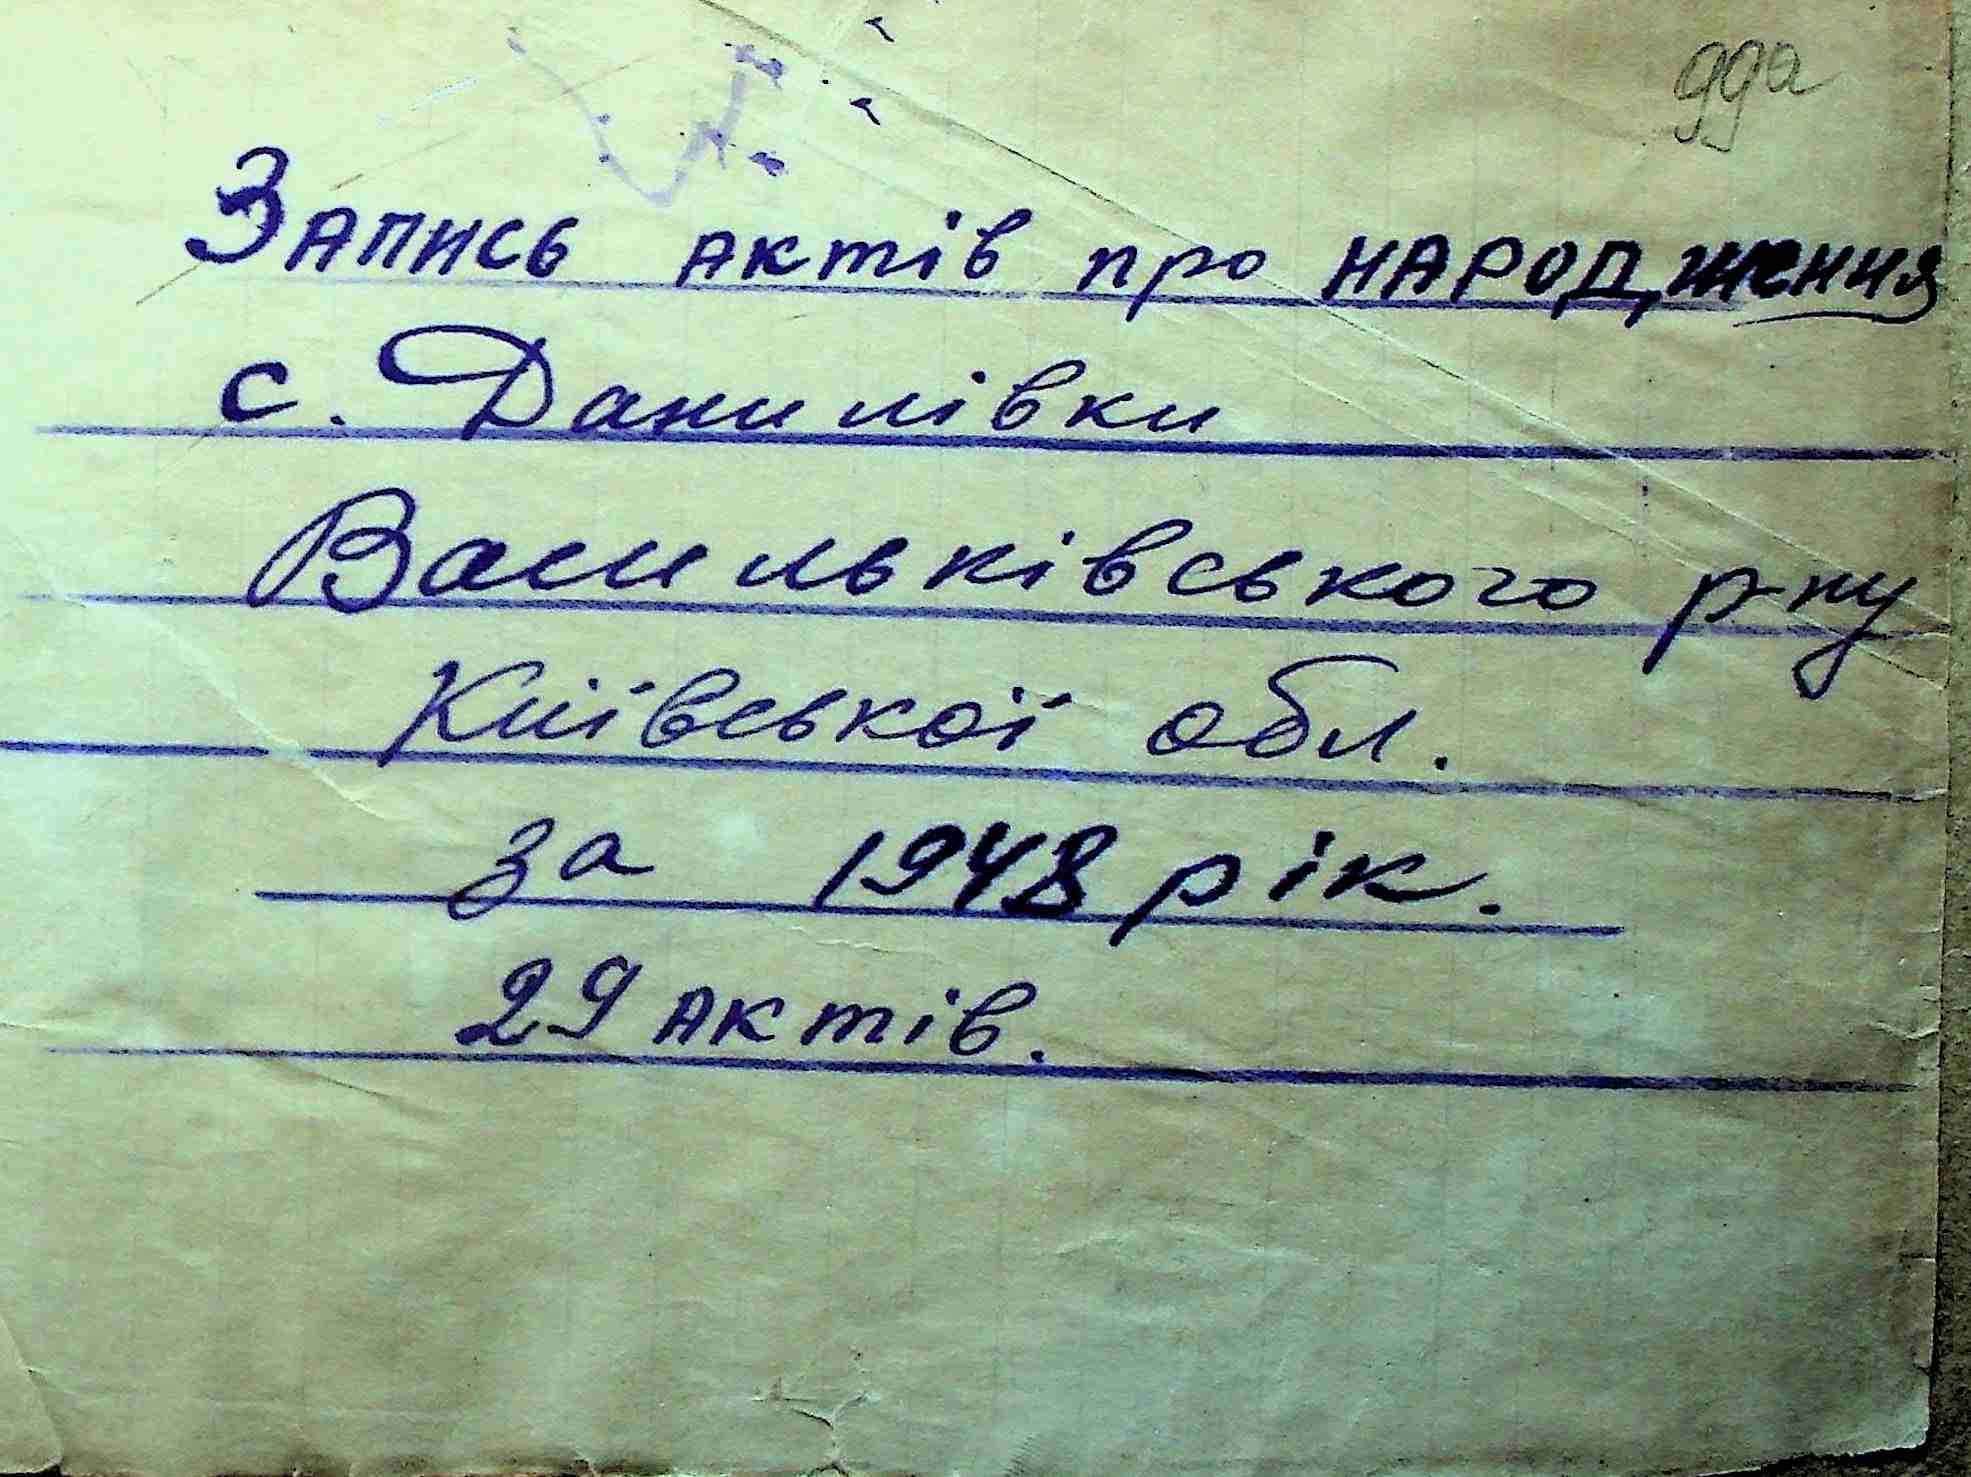 99а
Запись актів про народження
с. Данилівки
Васильківського р-ну
Київської обл.
за 1948 рік.
29 актів.